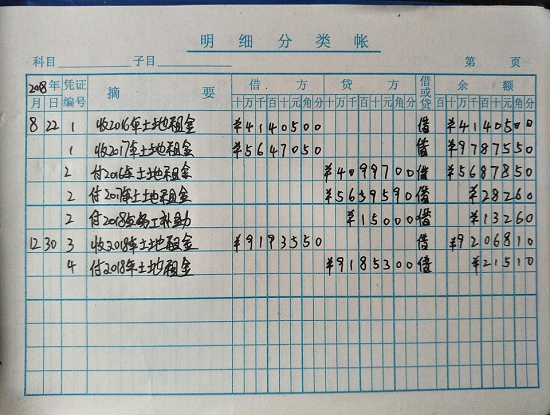 明细分类帐
科目 子目 第 页
2018年 凭证 摘 要 借 方 贷 方 借或贷 余 额
月 日 编号 十万千百十元角分 十万千百十元角分 十万千百十元角分
8 22 1 收2016年土地租金 ¥4140500 借 ¥4140500
1 收2017年土地租金 ¥5647050 借 ¥9787550
2 付2016年土地租金 ¥4099700 借 ¥5687850
2 付2017年土地租金 ¥5659590 借 ¥28260
2 付2018年工补助 ¥15000 借 ¥13260
12 30 3 收2018年土地租金 ¥9193550 借 ¥9206810
4 付2018年土地租金 ¥9185300 借 ¥21510